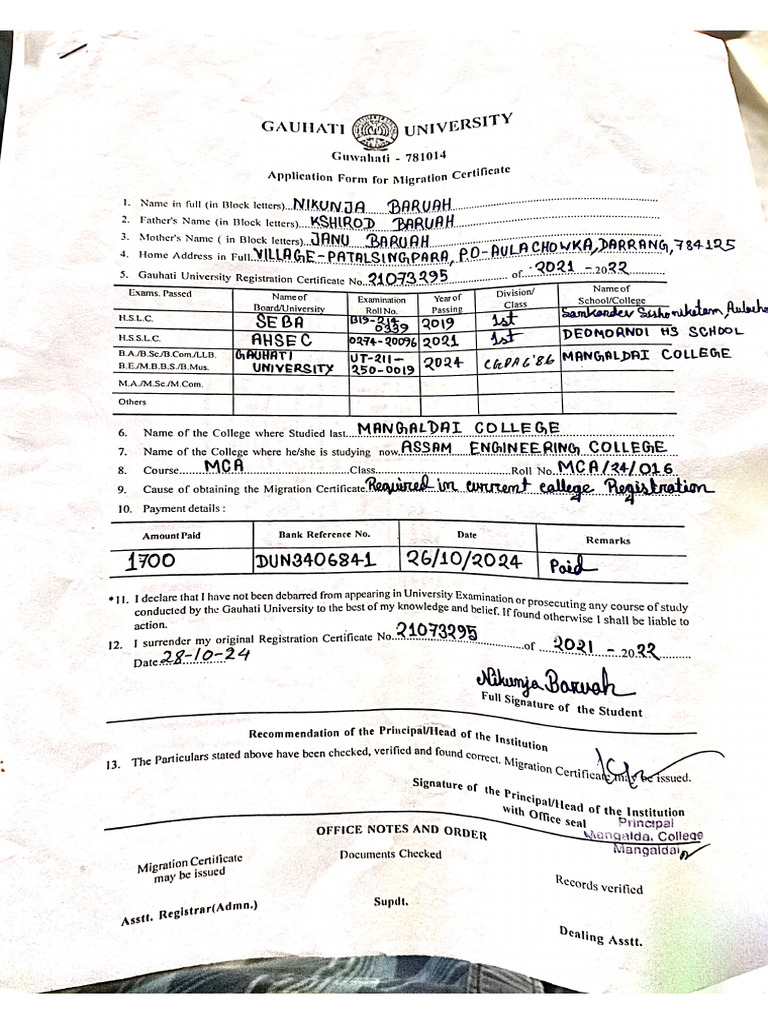 GAUHATI UNIVERSITY
Guwahati - 781014
Application Form for Migration Certificate
1. Name in full (in Block letters) NIKUNJA BARUAH
2. Father's Name (in Block letters) KSHIROD BARUAH
3. Mother's Name ( in Block letters) JANU BARUAH
4. Home Address in Full. VILLAGE-PATALSINGPARA, P.O-AULACHOWKA, DARRANG, 784125
5. Gauhati University Registration Certificate No. 21073295 of 2021 - 2022
Exams. Passed Name of Board/University Examination Roll No. Year of Passing Division/ Class Name of School/College
H.S.L.C. SEBA B19-214 0339 2019 1st Sankardev Sishoniketam,
H.S.S.L.C. AHSEC 0274-20096 2021 1st DEOMORNOI HS SCHOOL
B.A./B.Sc./B.Com./LLB. GAUHATI UT-211- 2024 MANGALDAI COLLEGE
B.E./M.B.B.S./B.Mus. UNIVERSITY 250-0019
M.A./M.Sc./M.Com.
Others
6. Name of the College where Studied last MANGALDAI COLLEGE
7. Name of the College where he/she is studying now. ASSAM ENGINEERING COLLEGE
8. Course MCA Class Roll No. MCA/24/016
9. Cause of obtaining the Migration Certificate Required in current college Registration
10. Payment details :
Amount Paid Bank Reference No. Date Remarks
1700 DUN3406841 26/10/2024 Paid
*11. I declare that I have not been debarred from appearing in University Examination or prosecuting any course of study
conducted by the Gauhati University to the best of my knowledge and belief. If found otherwise I shall be liable to
action.
12. I surrender my original Registration Certificate No. 21073295 of 2021 - 2022
Date 28-10-24
Nikunja Baruah
Full Signature of the Student
Recommendation of the Principal/Head of the Institution
13. The Particulars stated above have been checked, verified and found correct. Migration Certificate may be issued.
Signature of the Principal/Head of the Institution
with Office seal
Principal
Mangaldai College
Mangaldai
OFFICE NOTES AND ORDER
Migration Certificate
may be issued
Documents Checked
Records verified
Asstt. Registrar(Admn.)
Supdt.
Dealing Asstt.